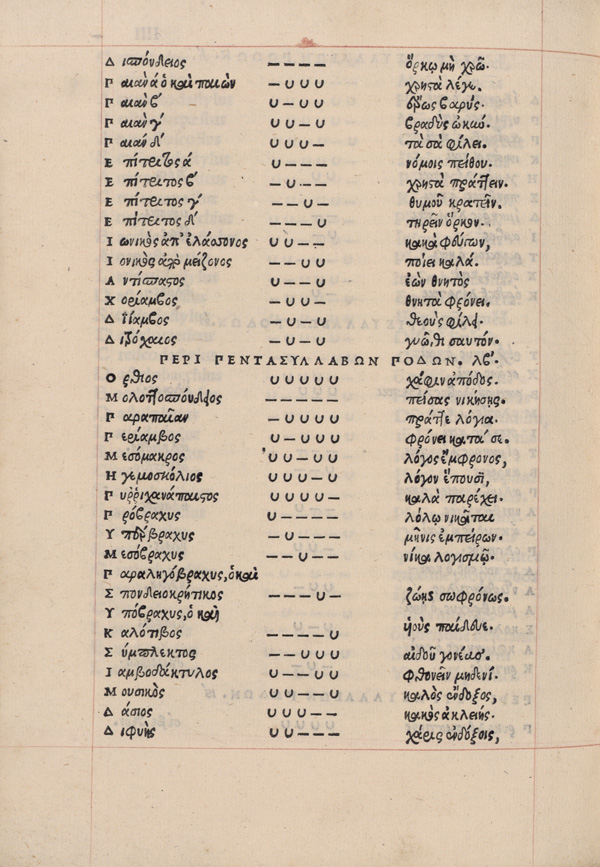 Δ ισπόνδειος – – – – ὅρκῳ μὴ χρῶ.
Π αιὰν ά ὁ καὶ παιὼν – υ υ υ χρηστὰ λέγε.
Π αιὰν β΄ υ – υ υ βαρύς.
Π αιὰν γ΄ υ υ – υ βραδὺς
Π αιὰν δ΄ υ υ υ – φίλει.
Ε πίτριτος ά υ – – – νόμοις πείθου.
Ε πίτριτος β΄ – υ – – χρηστὰ πράττειν.
Ε πίτριτος γ΄ – – υ – θυμοῦ κρατεῖν.
Ε πίτριτος δ΄ – – – υ τηρεῖν ὅρκον.
Ι ωνικὸς ἀπ᾽ ἐλάσσονος υ υ – – κακὰ φεύγων,
Ι ονικὸς ἀπὸ μείζονος – – υ υ ποίει καλά.
Α ντίσπαστος υ – – υ ἐὼν θνητὸς
Χ ορίαμβος – υ υ – θνητὰ φρόνει.
Δ ιΐαμβος υ – υ – θεοὺς φίλει.
Δ ιτρόχαιος – υ – υ γνῶθι σαυτόν.
ΠΕΡΙ ΠΕΝΤΑΣΥΛΛΑΒΩΝ ΠΟΔΩΝ. λβ΄.
Ο ρθιος υ υ υ υ υ χάριν ἀπόδος.
Μ ολοττοσπόνδειος – – – – – πείσας νικήσῃς.
Π αραπαίαν – υ υ υ υ πρᾶττε λόγια.
Π ερίαμβος υ – υ υ υ φρόνει κατά σε.
Μ εσόμακρος υ υ – υ υ λόγος ἔμφρονος,
Η γεμοσκόλιος υ υ υ – υ λόγον ἕπουσι,
Π υῤῥιχανάπαιστος υ υ υ υ – καλὰ παρέχει.
Π ρόβραχυς υ – – – – λόγῳ νικᾶται
Υ πόβραχυς – υ – – – μῆνις ἐμπείρων.
Μ εσόβραχυς – – υ – – νίκα λογισμῷ.
Π αραληγόβραχυς, ὁ καὶ
Σ πονδειοκρήτικος – – – υ – ζώης σωφρόνως.
Υ πόβραχυς, ὁ καὶ
Κ αλότιβος – – – – υ παίδευε.
Σ ύμπλεκτος – – υ υ υ αἰδοῦ γονέας.
Ι αμβοδάκτυλος υ – – υ υ φθονεῖν μηδενί.
Μ ουσικὸς υ υ – – υ καλὸς εὔδοξος,
Δ άσιος υ υ υ – – κακὸς ἀκλειής.
Δ ιφυὴς υ υ – – – χάρις εὐδόξοις,